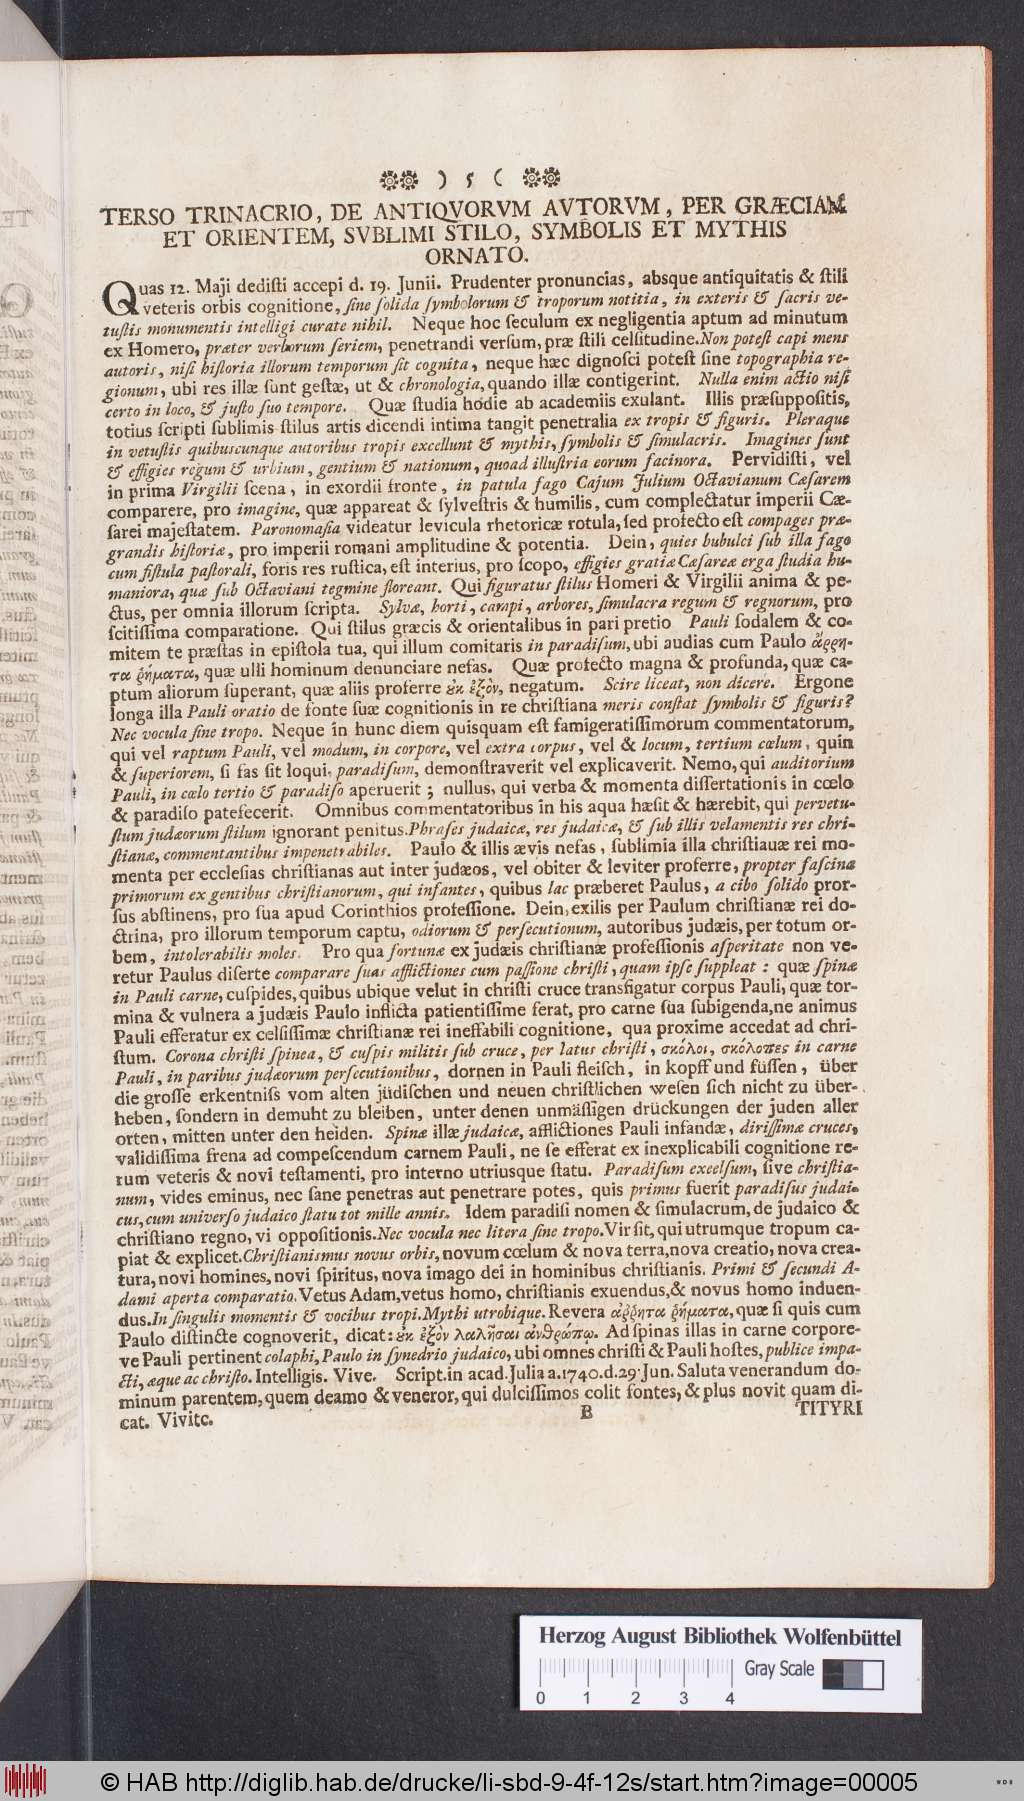 ❁❁ ) 5 ( ❁❁
TERSO TRINACRIO, DE ANTIQVORVM AVTORVM, PER GRÆCIAM
ET ORIENTEM, SVBLIMI STILO, SYMBOLIS ET MYTHIS
ORNATO.
Quas 12. Maji dedisti accepi d. 19. Junii. Prudenter pronuncias, absque antiquitatis & stili
veteris orbis cognitione, sine solida symbolorum & troporum notitia, in exteris & sacris ve-
tustis monumentis intelligi curate nihil. Neque hoc seculum ex negligentia aptum ad minutum
ex Homero, præter verborum seriem, penetrandi versum, præ stili celsitudine. Non potest capi mens
autoris, nisi historia illorum temporum sit cognita, neque hæc dignosci potest sine topographia re-
gionum, ubi res illæ sunt gestæ, ut & chronologia, quando illæ contigerint. Nulla enim actio nisi
certo in loco, & justo suo tempore. Quæ studia hodie ab academiis exulant. Illis præsuppositis,
totius scripti sublimis stilus artis dicendi intima tangit penetralia ex tropis & figuris. Pleraque
in vetustis quibuscunque autoribus tropis excellunt & mythis, symbolis & simulacris. Imagines sunt
& effigies regum & urbium, gentium & nationum, quoad illustria eorum facinora. Pervidisti, vel
in prima Virgilii scena, in exordii fronte, in patula fago Cajum Julium Octavianum Cæsarem
comparere, pro imagine, quæ appareat & sylvestris & humilis, cum complectatur imperii Cæ-
sarei majestatem. Paronomasia videatur levicula rhetoricæ rotula, sed profecto est compages præ-
grandis historiæ, pro imperii romani amplitudine & potentia. Dein, quies bubulci sub illa fago
cum fistula pastorali, foris res rustica, est interius, pro scopo, effigies gratiæ Cæsareæ erga studia hu-
maniora, quæ sub Octaviani tegmine floreant. Qui figuratus stilus Homeri & Virgilii anima & pe-
ctus, per omnia illorum scripta. Sylvæ, horti, campi, arbores, simulacra regum & regnorum, pro
scitissima comparatione. Qui stilus græcis & orientalibus in pari pretio Pauli sodalem & co-
mitem te præstas in epistola tua, qui illum comitaris in paradisum, ubi audias cum Paulo ἄῤῥη-
τα ῥήματα, quæ ulli hominum denunciare nefas. Quæ profecto magna & profunda, quæ ca-
ptum aliorum superant, quæ aliis proferre ȣκ ἐξὸν, negatum. Scire liceat, non dicere. Ergone
longa illa Pauli oratio de fonte suæ cognitionis in re christiana meris constat symbolis & figuris?
Nec vocula sine tropo. Neque in hunc diem quisquam est famigeratissimorum commentatorum,
qui vel raptum Pauli, vel modum, in corpore, vel extra corpus, vel & locum, tertium cœlum, quin
& superiorem, si fas sit loqui, paradisum, demonstraverit vel explicaverit. Nemo, qui auditorium
Pauli, in cœlo tertio & paradiso aperuerit; nullus, qui verba & momenta dissertationis in cœlo
& paradiso patefecerit. Omnibus commentatoribus in his aqua hæsit & hærebit, qui pervetu-
stum judæorum stilum ignorant penitus. Phrases judaicæ, res judaicæ, & sub illis velamentis res chri-
stianæ, commentantibus impenetrabiles. Paulo & illis ævis nefas, sublimia illa christiauæ rei mo-
menta per ecclesias christianas aut inter judæos, vel obiter & leviter proferre, propter fascinæ
primorum ex gentibus christianorum, qui infantes, quibus lac præberet Paulus, a cibo solido pror-
sus abstinens, pro sua apud Corinthios professione. Dein, exilis per Paulum christianæ rei do-
ctrina, pro illorum temporum captu, odiorum & persecutionum, autoribus judæis, per totum or-
bem, intolerabilis moles. Pro qua fortunæ ex judæis christianæ professionis asperitate non ve-
retur Paulus diserte comparare suas afflictiones cum passione christi, quam ipse suppleat: quæ spinæ
in Pauli carne, cuspides, quibus ubique velut in christi cruce transfigatur corpus Pauli, quæ tor-
mina & vulnera a judæis Paulo inflicta patientissime ferat, pro carne sua subigenda, ne animus
Pauli efferatur ex celsissimæ christianæ rei ineffabili cognitione, qua proxime accedat ad chri-
stum. Corona christi spinea, & cuspis militis sub cruce, per latus christi, σκόλοι, σκόλοπες in carne
Pauli, in paribus judæorum persecutionibus, dornen in Pauli fleisch, in kopff und füssen, über
die grosse erkentniss vom alten jüdischen und neuen christlichen wesen sich nicht zu über-
heben, sondern in demuht zu bleiben, unter denen unmässigen drückungen der juden aller
orten, mitten unter den heiden. Spinæ illæ judaicæ, afflictiones Pauli infandæ, dirissimæ cruces,
validissima frena ad compescendum carnem Pauli, ne se efferat ex inexplicabili cognitione re-
rum veteris & novi testamenti, pro interno utriusque statu. Paradisum excelsum, sive christia-
num, vides eminus, nec sane penetras aut penetrare potes, quis primus fuerit paradisus judai-
cus, cum universo judaico statu tot mille annis. Idem paradisi nomen & simulacrum, de judaico &
christiano regno, vi oppositionis. Nec vocula nec litera sine tropo. Vir sit, qui utrumque tropum ca-
piat & explicet. Christianismus novus orbis, novum cœlum & nova terra, nova creatio, nova crea-
tura, novi homines, novi spiritus, nova imago dei in hominibus christianis. Primi & secundi A-
dami aperta comparatio. Vetus Adam, vetus homo, christianis exuendus, & novus homo induen-
dus. In singulis momentis & vocibus tropi. Mythi utrobique. Revera ἀῤῥητα ῥήματα, quæ si quis cum
Paulo distincte cognoverit, dicat: ȣκ ἐξὸν λαλῆσαι ἀνθρώπῳ. Ad spinas illas in carne corpore-
ve Pauli pertinent colaphi, Paulo in synedrio judaico, ubi omnes christi & Pauli hostes, publice impa-
cti, æque ac christo. Intelligis. Vive. Script. in acad. Julia a. 1740. d. 29 Jun. Saluta venerandum do-
minum parentem, quem deamo & veneror, qui dulcissimos colit fontes, & plus novit quam di-
cat. Vivite.
B TITYRI
Herzog August Bibliothek Wolfenbüttel
Gray Scale
0 1 2 3 4
© HAB http://diglib.hab.de/drucke/li-sbd-9-4f-12s/start.htm?image=00005